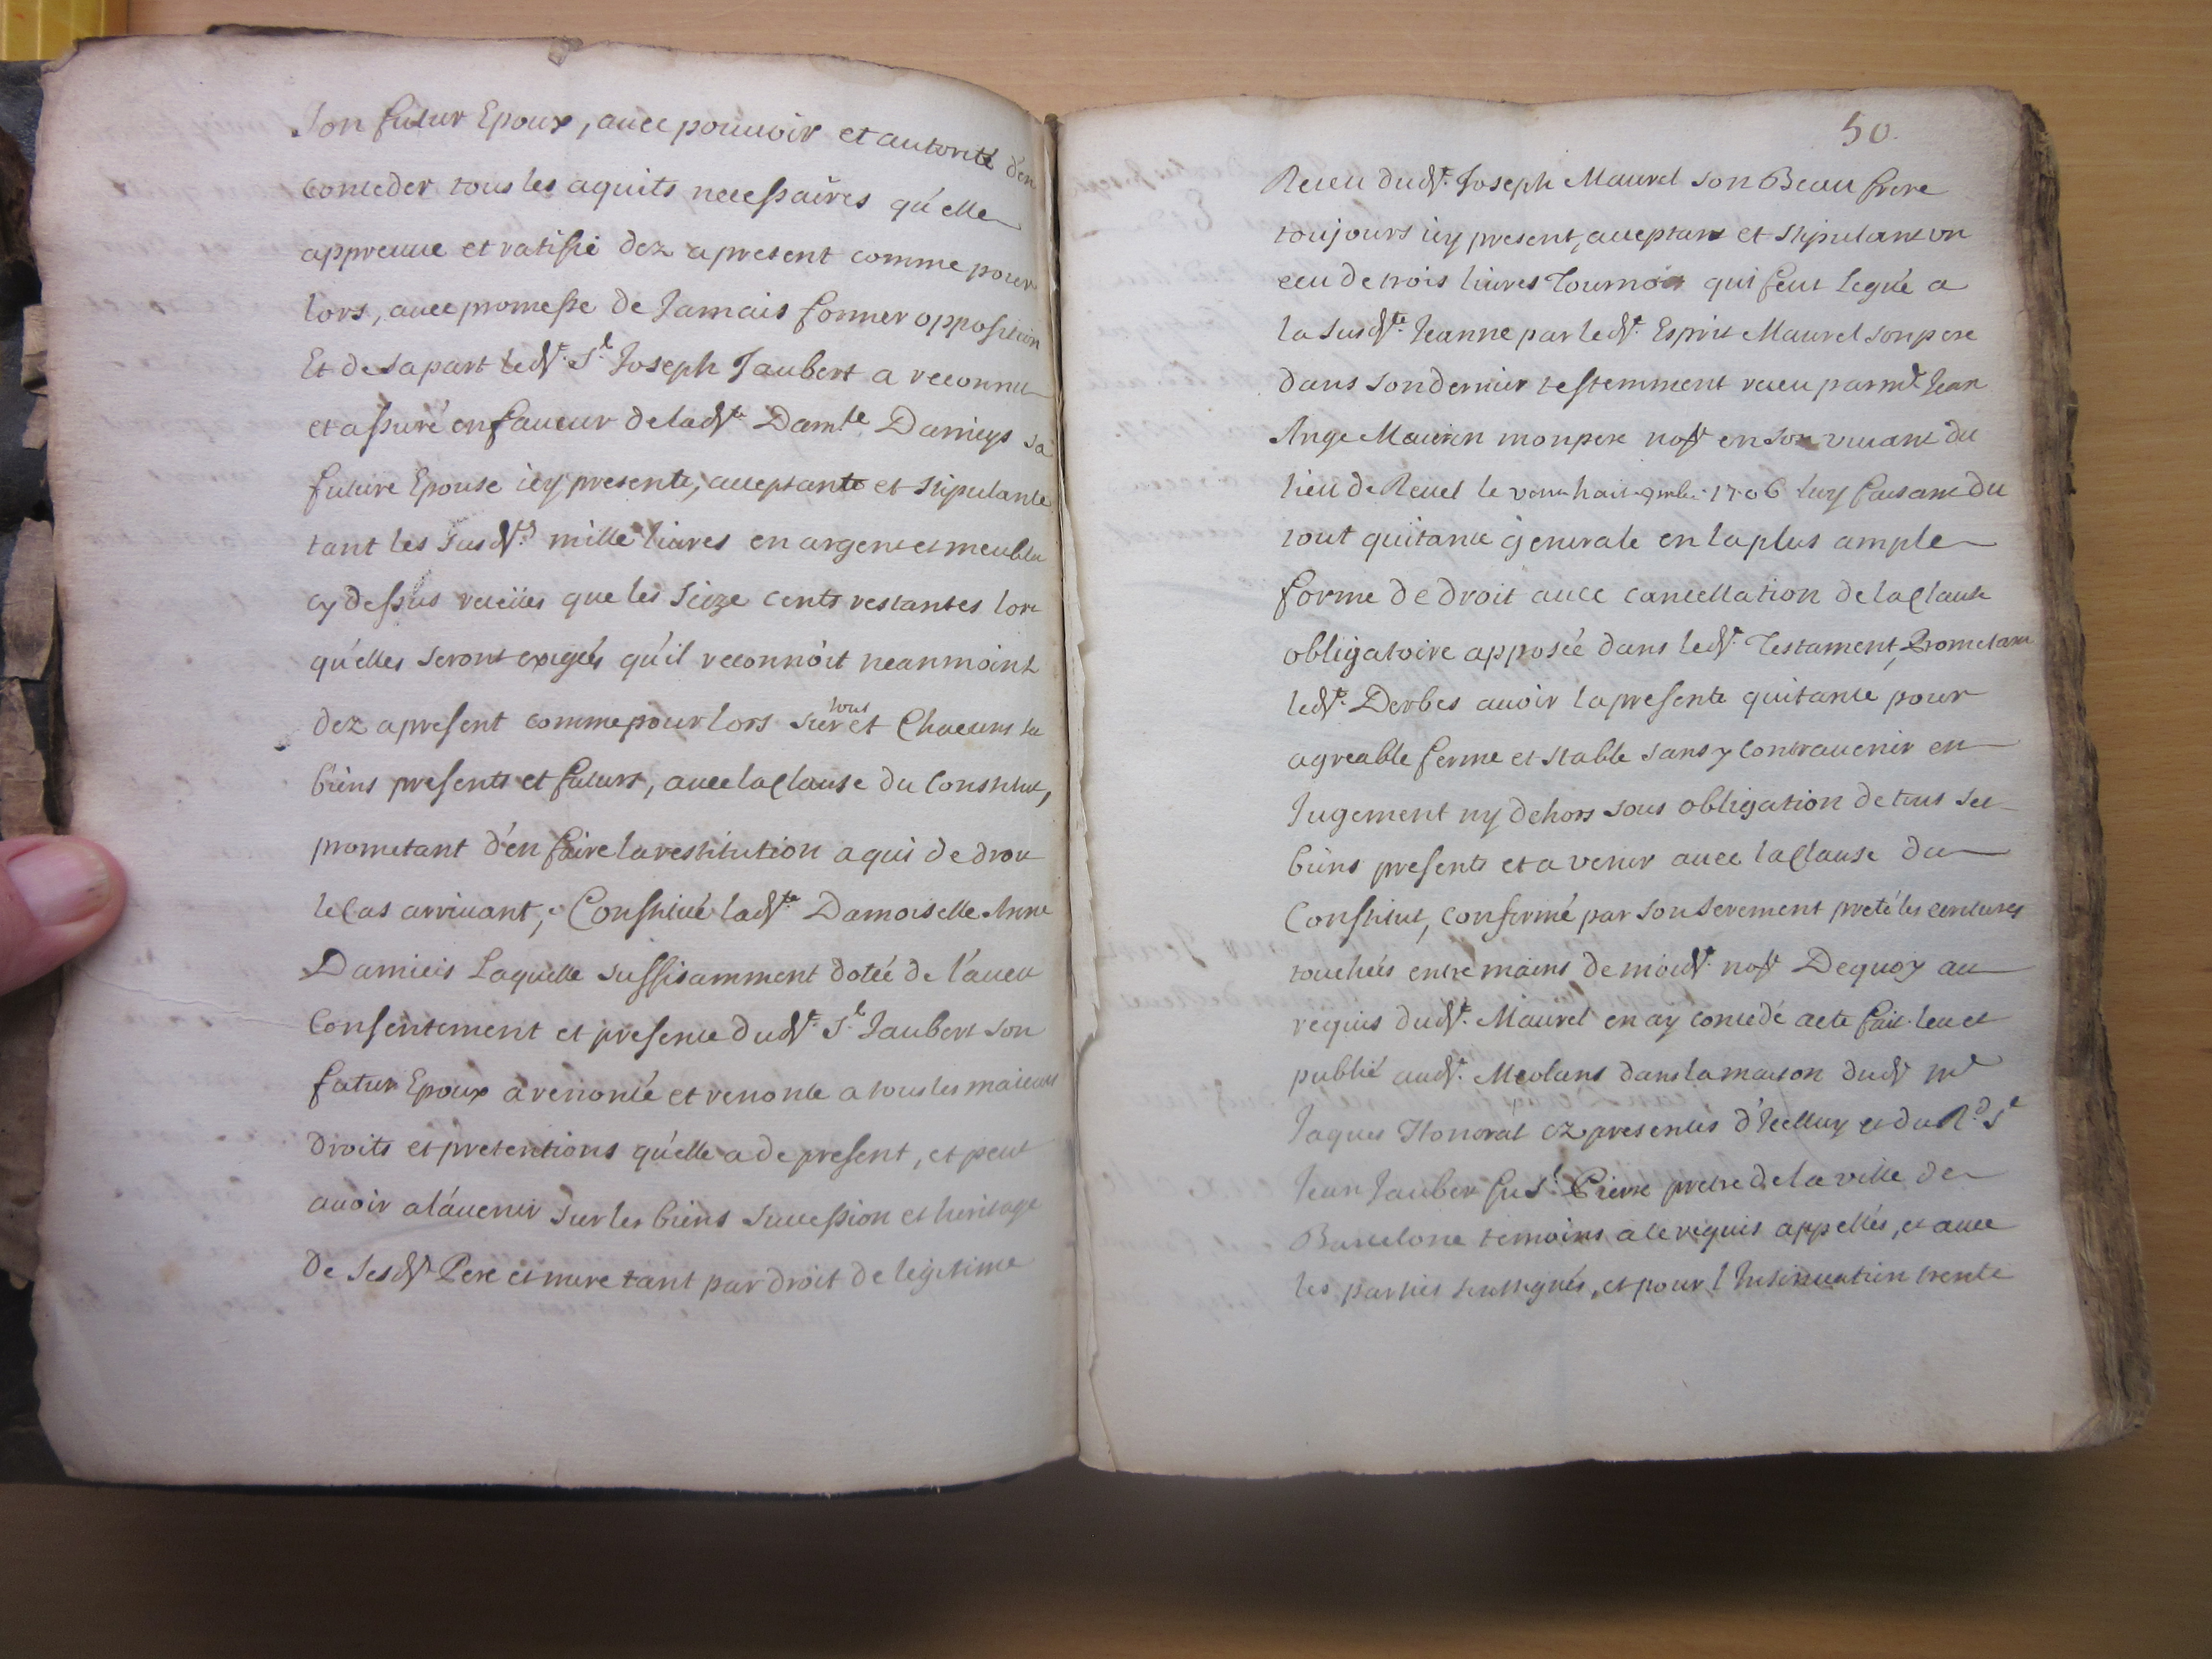 Son futur Epoux, avec pouuoir et autorité d'en
conceder tous les aquits necessaires qu'elle
appreuue et ratiffie dez a present comme pour
lors, auec promesse de Jamais former opposition
Et de sa part led.t S.r Joseph Jaubert a reconnu
et assuré en faueur de lad.te Dam.lle Damieys sa
future Epouse icy presente, acceptante et stipulante
tant les susd.ts mille liures en argent et meubles
cy dessus receües que les seize cents restantes lors
qu'elles seront exigées qu'il reconnôit neanmoins
dez a present comme pour lors sur tous et Chacuns ses
biens presents et futurs, auec la Clause du Constitut,
prometant d'en faire la restitution a qui de droit
le Cas arriuant, Constitué lad.te Damoiselle Anne
Damieis Laquelle suffisamment dotée de l'aueu
Consentement et presence dud.t S.r Jaubert son
futur Epoux a renoncé et renonce a tous les
droits et pretentions qu'elle a de present, et peut
auoir a l'auenir sur les biens succession et heritage
de sesd.ts Pere et mere tant par droit de legitime
50.
Receu dud.t Joseph Maurel son Beau frere
toujours icy present, acceptant et stipulant un
ecu de trois liures Tournois qui feut Legué a
la susd.te Jeanne par led.t Esprit Maurel son pere
dans son dernier testemment receu par m.e Jean
Ange Maurin mon pere no.re en son viuant du
lieu de Reuel le vint huit 9mbre 1706 luy faisant du
tout quitance generale en la plus ample
forme de droit auec cancellation de la Clause
obligatoire apposée dans led.t Testament, Prometant
led.t Derbes auoir la presente quitance pour
agreable ferme et stable sans y contrauenir en
Jugement ny dehors sous obligation de tous ses
biens presents et a venir auec la Clause du
Constitut, confirmé par son serement preté les
touchées entre mains de moud.t no.re Dequoy au
requis dud.t Maurel en ay concedé acte fait leu et
publié aud.t Meolans dans la maison dud.t m.e
Jaques Honorat ez presences d'Icelluy et du R.d S.r
Jean Jauber fu S.r Pierre pretre de la ville de
Barcelone temoins a ce requis appellés, et auec
les parties soussignés, et pour l'Insinuation trente